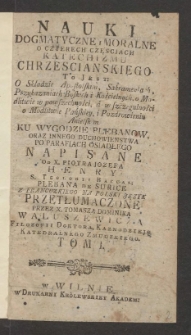 NAUKI
DOGMATYCZNE y MORALNE
O CZTERECH CZĘSCIACH
KATECHIZMU
CHRZESCIANSKIEGO
To Jest:
O Składzie Apostolskim, Sakramentach,
Przykazaniach Boskich i Kościelnych, o Mo-
dlitwie w powszechności, a w szczególności
o Modlitwie Pańskiey, i Pozdrowieniu
Anielskim
KU WYGODZIE PLEBANOW,
ORAZ INNEGO DUCHOWIENSTWA
PO PARAFIACH OSIADŁEGO
NAPISANE
PRZEZ X. PIOTRA JOZEFA
HENRY
PLEBANA DE SURICE
Z FRANCUZKIEGO NA POLSKI JĘZYK
PRZETŁUMACZONE
PRZEZ X. TOMASZA DOMINIKA
WALUSZEWICZA
FILOZOFII DOKTORA, KAZNODZIEJĘ
KATEDRALNEGO
TOM I.
w WILNIE,
w DRUKARNI KROLEWSKIEY AKADEMII